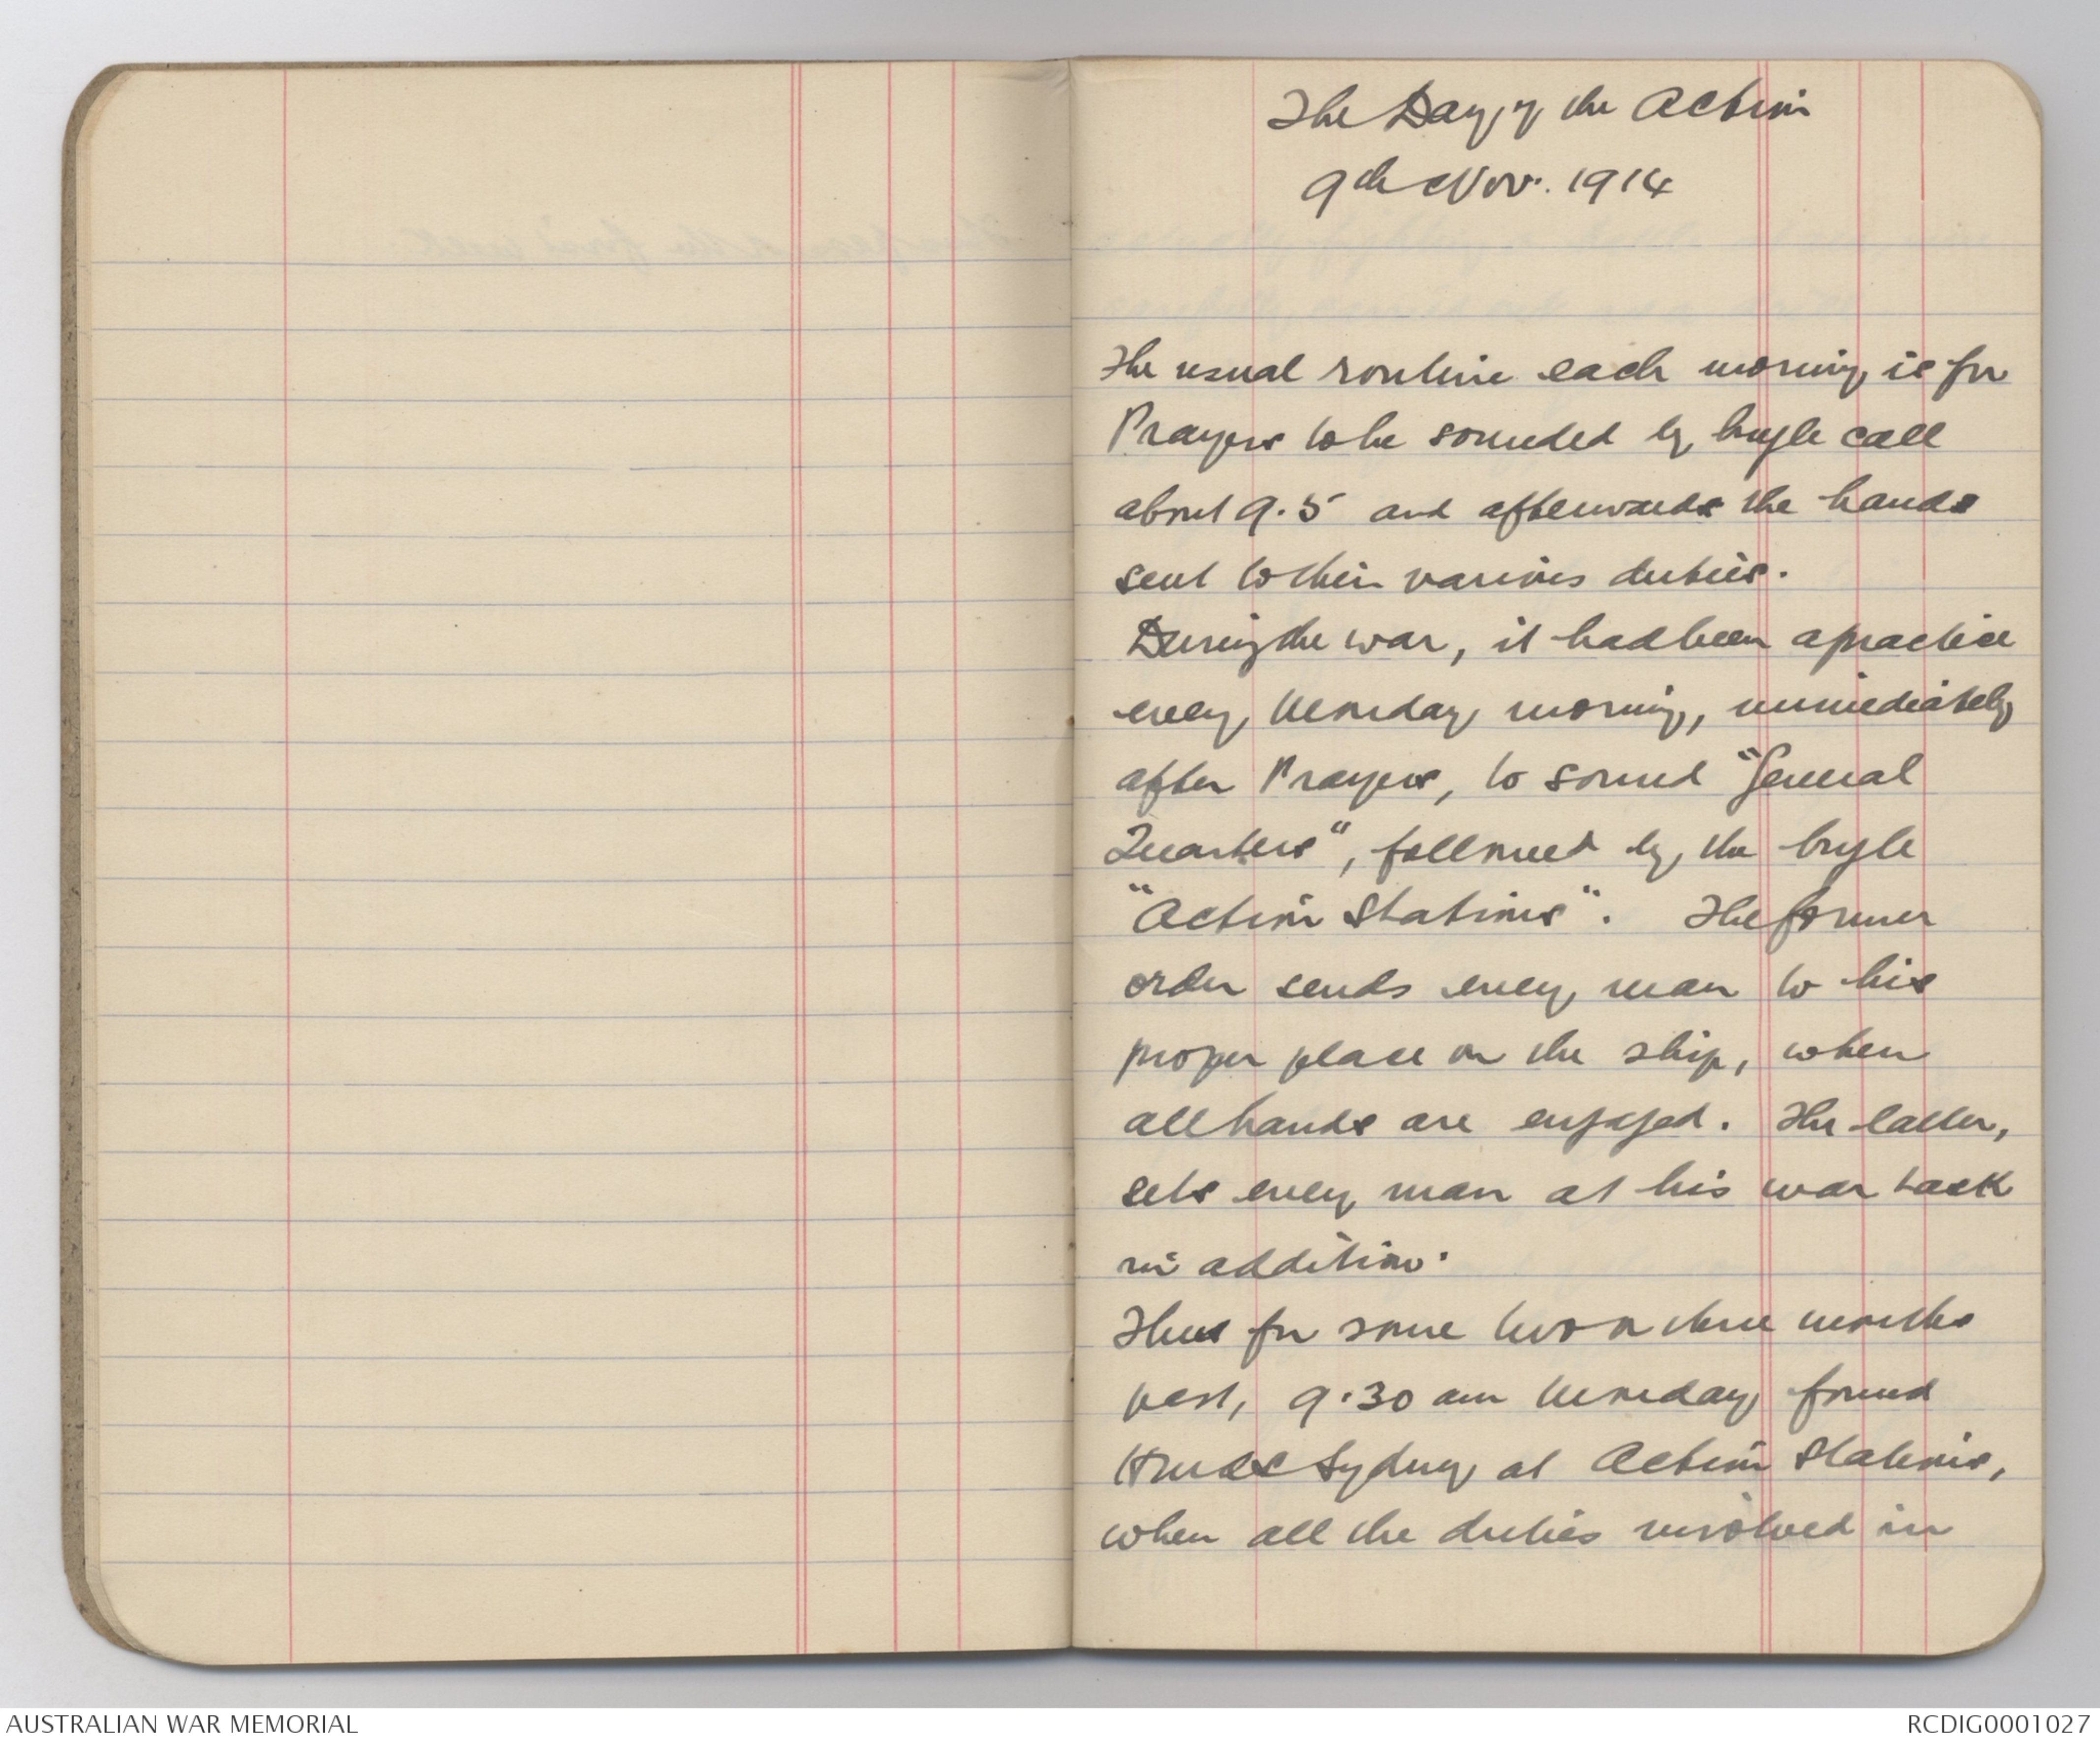 The Day of the Action
9th Nov. 1914
The usual routine each morning is for
Prayers to be sounded by bugle call
about 9.5 and afterwards the hands
sent to their various duties.
During the war, it had been a practice
every Monday morning, immediately
after Prayers, to sound "General
Quarters", followed by the bugle
"Action Stations". The former
order sends every man to his
proper place on the ship, when
all hands are engaged. The latter,
sets every man at his war task
in addition.
Thus for some two or three months
past, 9.30 am Monday found
HMAS Sydney at Action Stations,
when all the duties involved in
AUSTRALIAN WAR MEMORIAL
RCDIG0001027